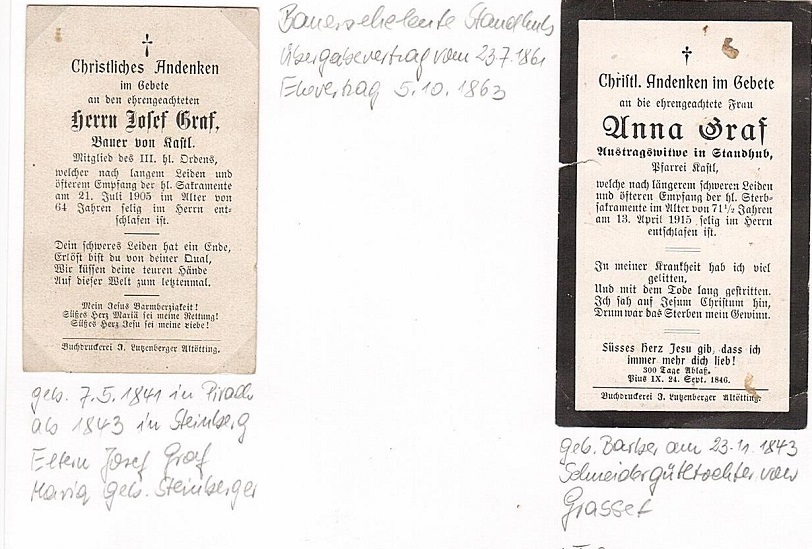 Christliches Andenken
im Gebete
an den ehrengeachteten
Herrn Josef Graf,
Bauer von Kastl.
Mitglied des III. hl. Ordens,
welcher nach langem Leiden und
öfterem Empfang der hl. Sakramente
am 21. Juli 1905 im Alter von
64 Jahren selig im Herrn ent-
schlafen ist.
Dein schweres Leiden hat ein Ende,
Erlöst bist du von deiner Qual,
Wir küssen deine teuren Hände
Auf dieser Welt zum letztenmal.
Mein Jesus Barmherzigkeit!
Süßes Herz Mariä sei meine Rettung!
Süßes Herz Jesu sei meine Liebe!
Buchdruckerei J. Lutzenberger Altötting.
geb. 7.5.1841 in
ab 1843 in Steinberg
Eltern Josef Graf
Maria geb. Steinberger
Bauerseheleute Standhub
Übergabevertrag vom 23.7.1861
Ehevertrag 5.10.1863
Christl. Andenken im Gebete
an die ehrengeachtete Frau
Anna Graf
Austragswitwe in Standhub,
Pfarrei Kastl,
welche nach längerem schweren Leiden
und öfteren Empfang der hl. Sterb-
sakramente im Alter von 71 1/2 Jahren
am 13. April 1915 selig im Herrn
entschlafen ist.
In meiner Krankheit hab ich viel
gelitten,
Und mit dem Tode lang gestritten.
Ich sah auf Jesum Christum hin,
Drum war das Sterben mein Gewinn.
Süsses Herz Jesu gib, dass ich
immer mehr dich lieb!
300 Tage Ablaß.
Pius IX. 24. Sept. 1846.
Buchdruckerei J. Lutzenberger Altötting.
geb. Barber am 23.11.1843
Schneidergütltochter von
Grasset